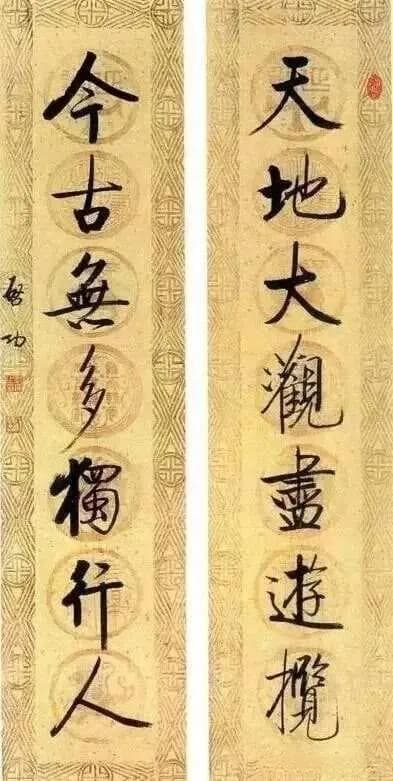 天地大觀盡遊欖
今古無多獨行人
啓功